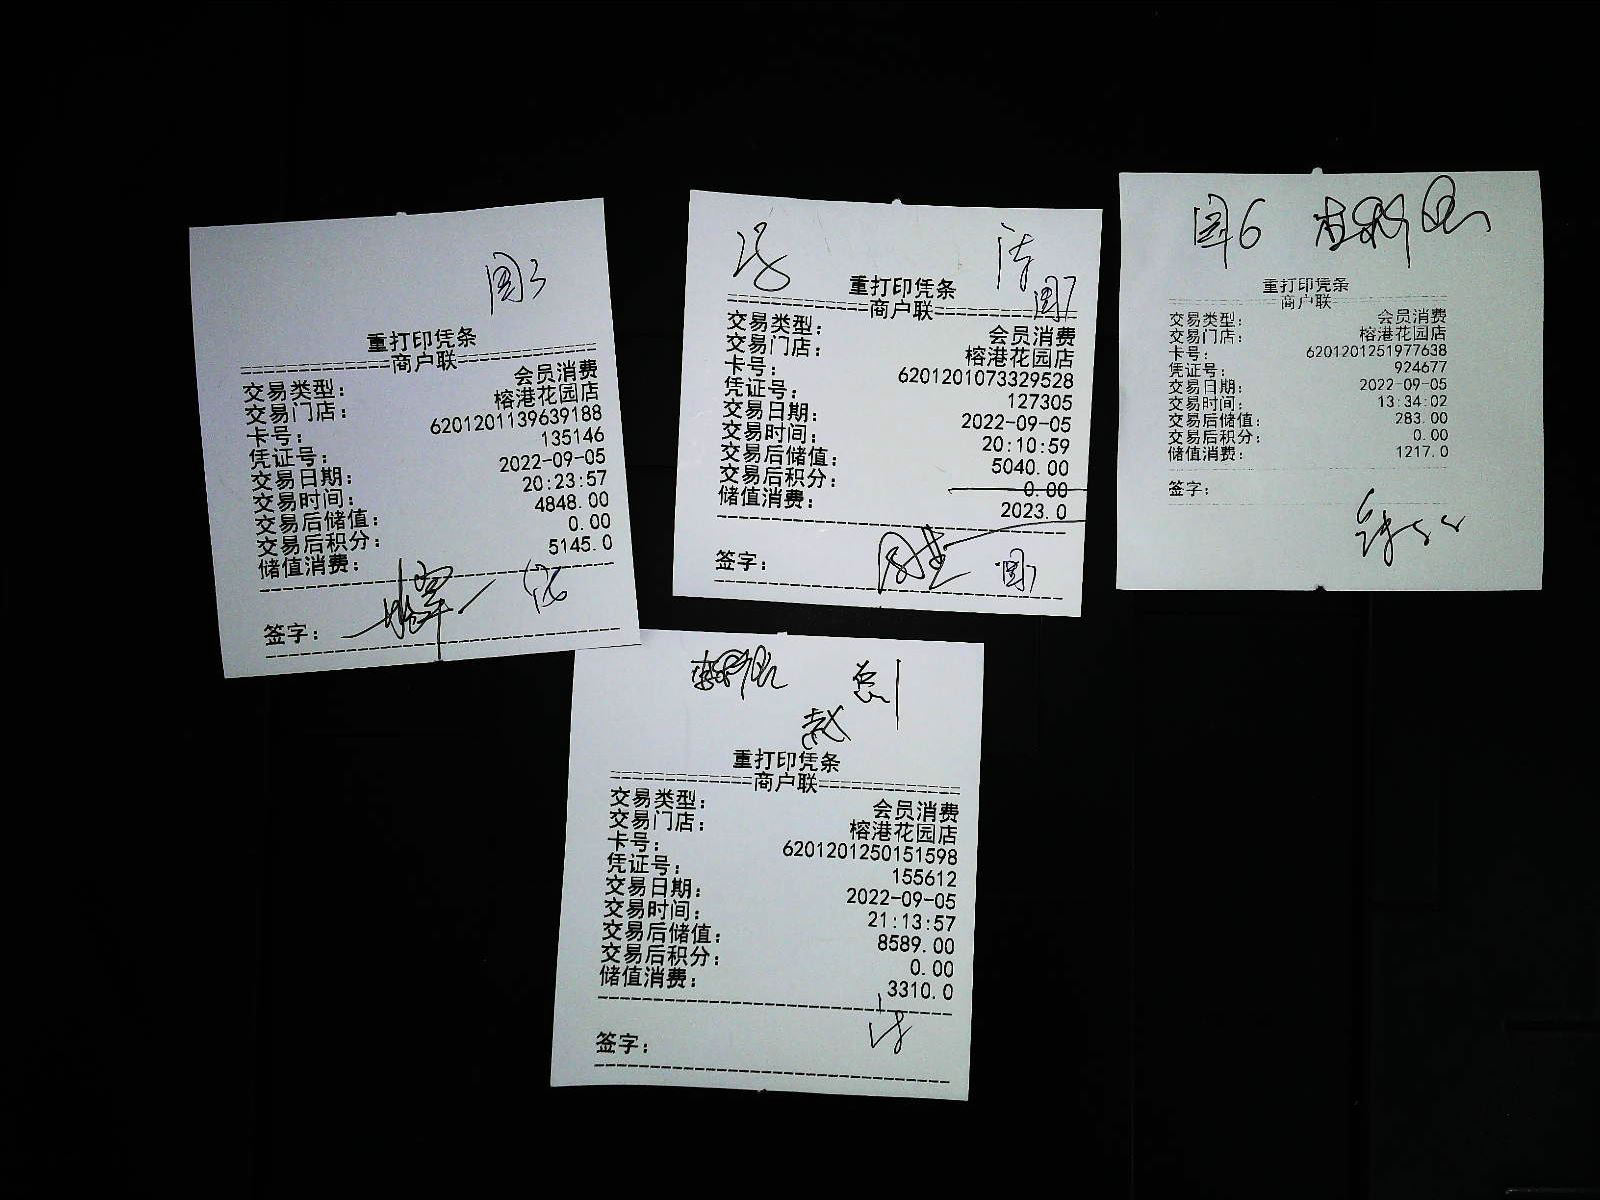 国3
重打印凭条
商户联
交易类型： 会员消费
交易门店： 榕港花园店
卡号： 6201201139639188
凭证号： 135146
交易日期： 2022-09-05
交易时间： 20:23:57
交易后储值： 4848.00
交易后积分： 0.00
储值消费： 5145.0
签字：
国7
重打印凭条
商户联
交易类型： 会员消费
交易门店： 榕港花园店
卡号： 6201201073329528
凭证号： 127305
交易日期： 2022-09-05
交易时间： 20:10:59
交易后储值： 5040.00
交易后积分： 0.00
储值消费： 2023.0
签字：
国7
国6
重打印凭条
商户联
交易类型： 会员消费
交易门店： 榕港花园店
卡号： 6201201251977638
凭证号： 924677
交易日期： 2022-09-05
交易时间： 13:34:02
交易后储值： 283.00
交易后积分： 0.00
储值消费： 1217.0
签字：
重打印凭条
商户联
交易类型： 会员消费
交易门店： 榕港花园店
卡号： 6201201250151598
凭证号： 155612
交易日期： 2022-09-05
交易时间： 21:13:57
交易后储值： 8589.00
交易后积分： 0.00
储值消费： 3310.0
签字：